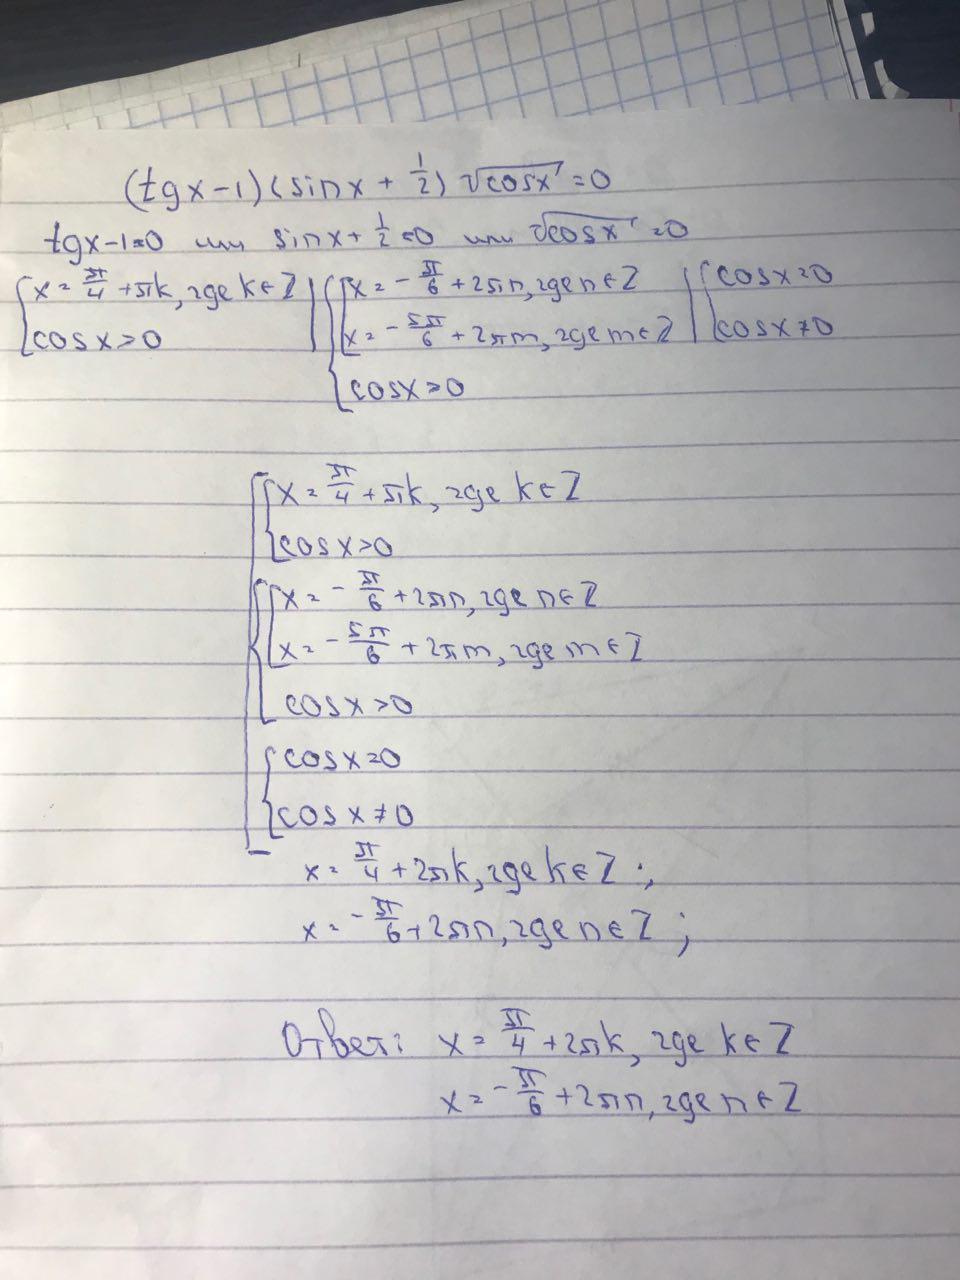 (tgx-1)(sinx + 1/2) √cosx = 0
tgx-1=0 или sinx + 1/2 = 0 или √cosx = 0
{ x = π/4 + πk, где k∈Z | { [ x = -π/6 + 2πn, где n∈Z | { cosx=0
cosx>0 x = -5π/6 + 2πm, где m∈Z | cosx≠0
cosx>0
[ { x = π/4 + πk, где k∈Z
cosx>0
{ [ x = -π/6 + 2πn, где n∈Z
x = -5π/6 + 2πm, где m∈Z
cosx>0
{ cosx=0
cosx≠0
x = π/4 + 2πk, где k∈Z ;
x = -π/6 + 2πn, где n∈Z ;
Ответ: x = π/4 + 2πk, где k∈Z
x = -π/6 + 2πn, где n∈Z